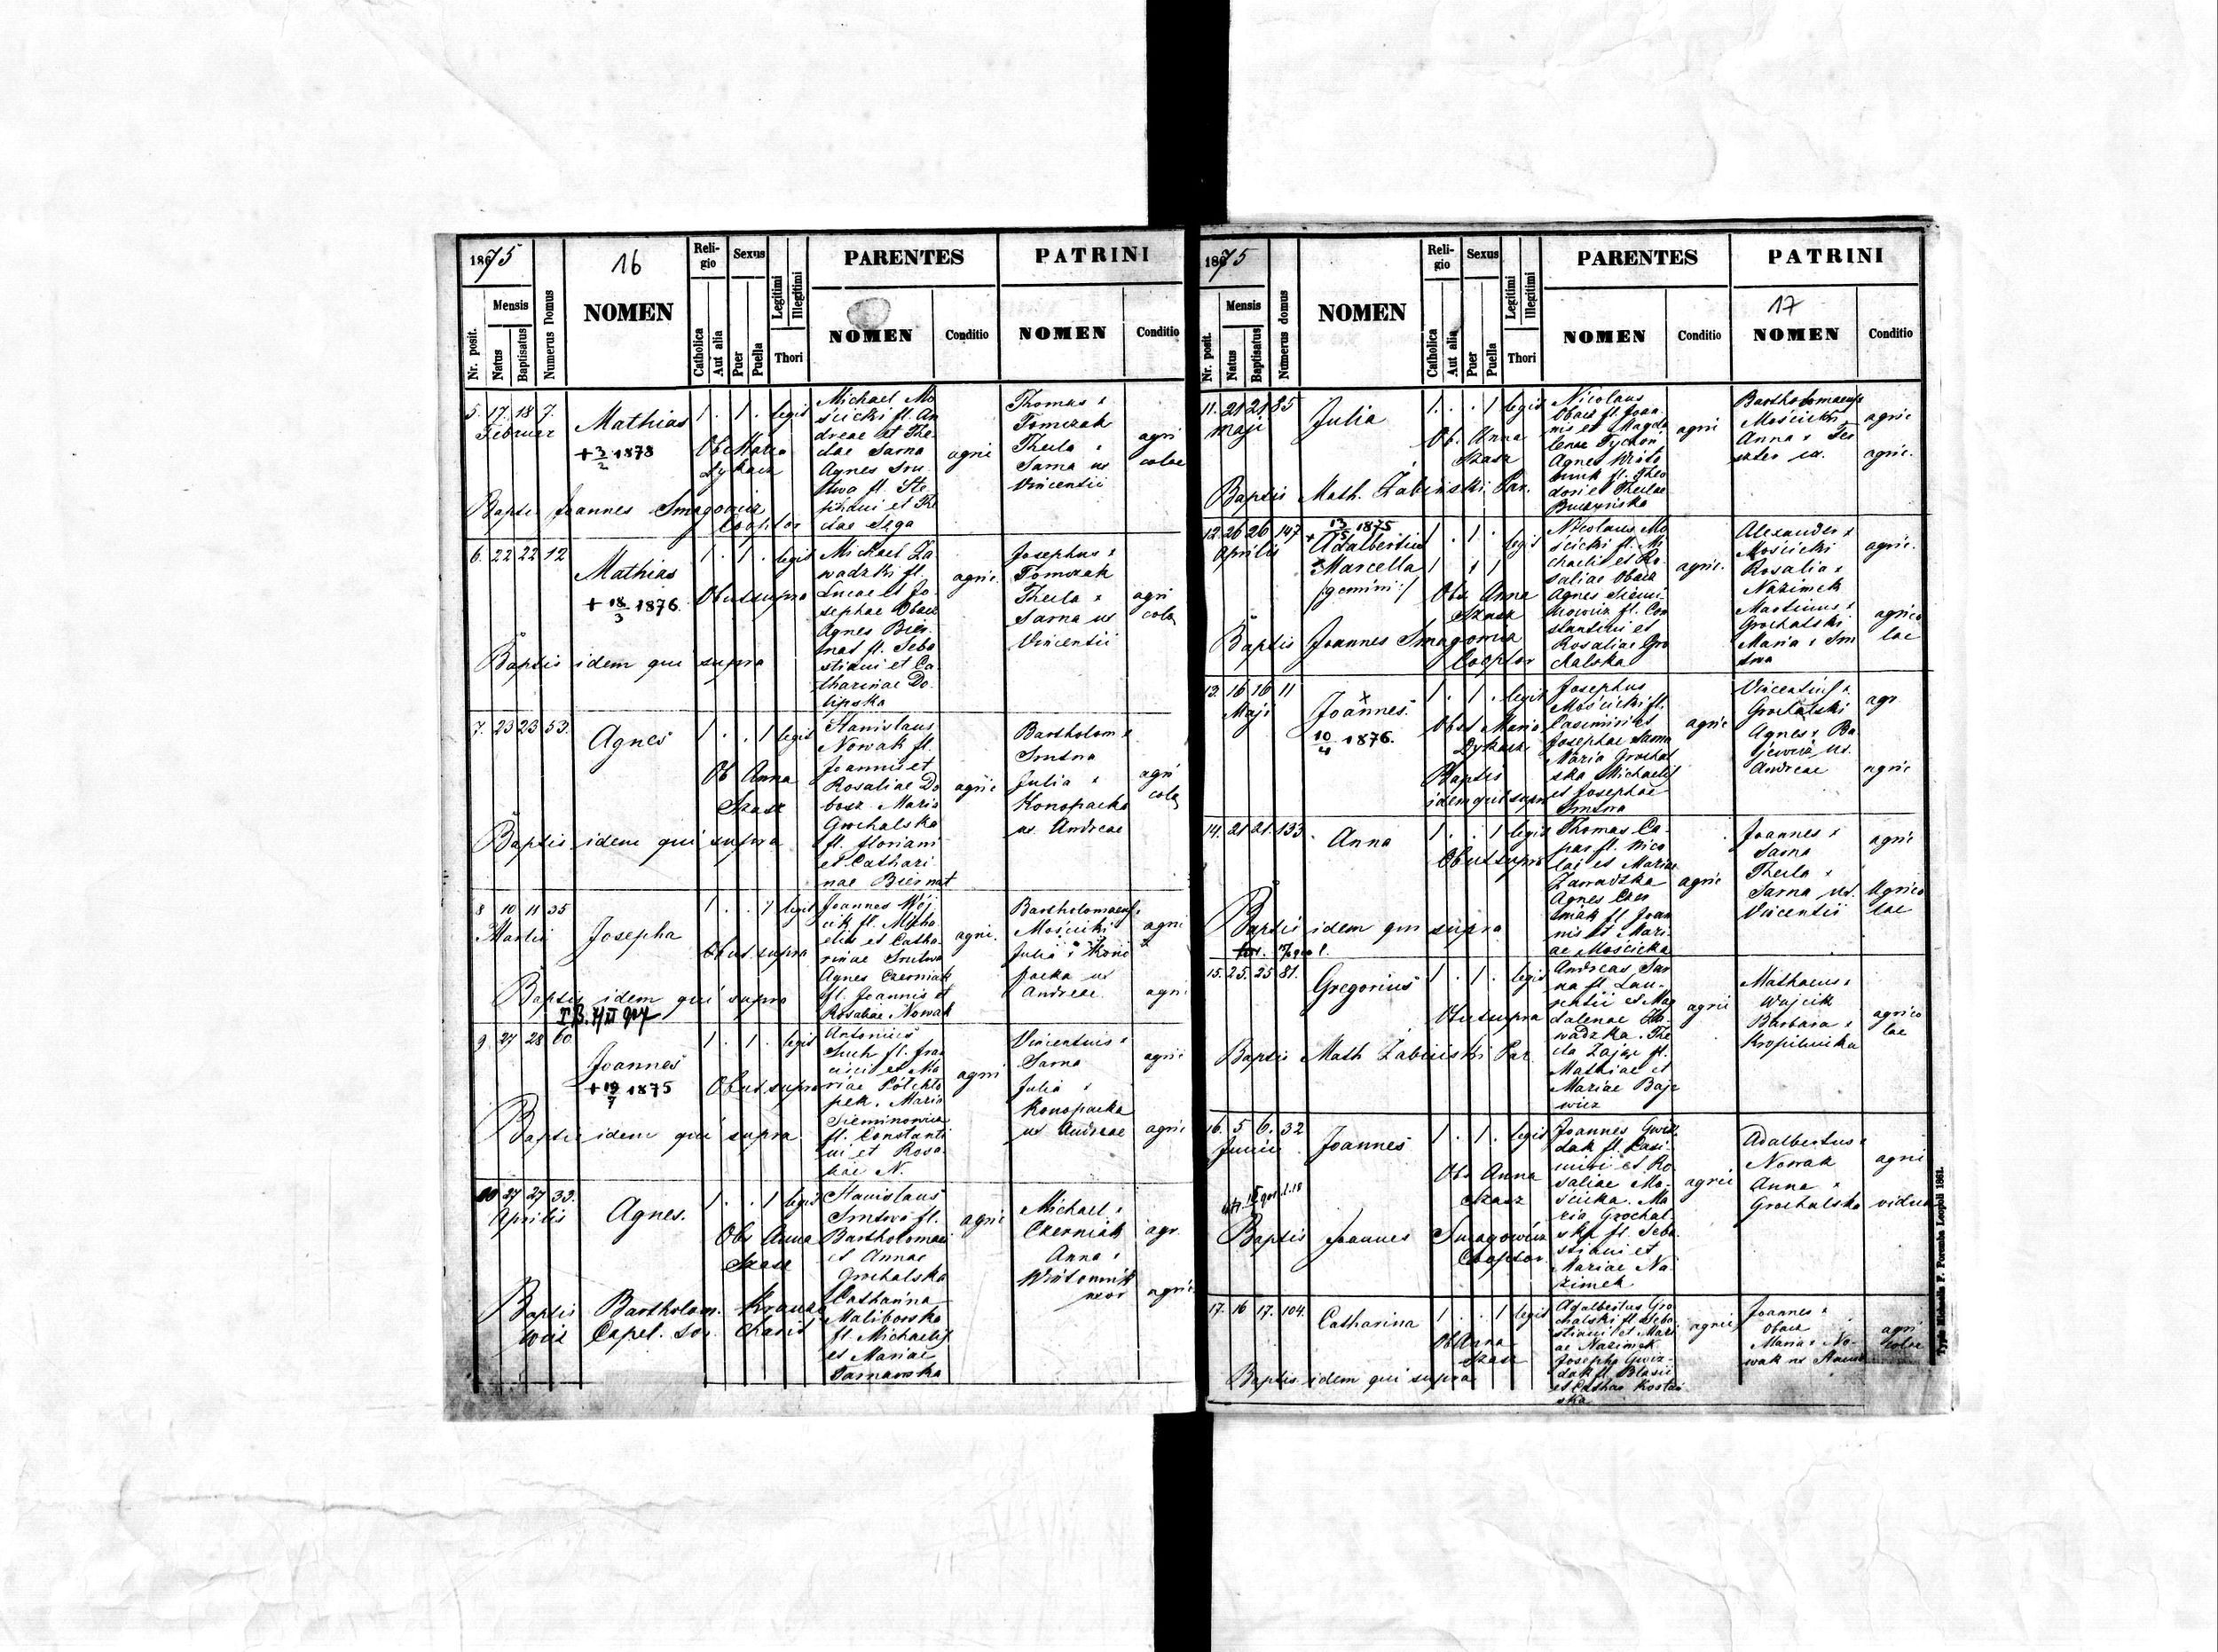 1875
16
Reli-
gio
Sexus
Legitimi
Illegitimi
PARENTES
PATRINI
Mensis
Nr. posit.
Natus
Baptisatus
Numerus Domus
NOMEN
Catholica
Aut alia
Puer
Puella
Thori
NOMEN
Conditio
NOMEN
Conditio
5. 17. 18 7.
Februar
Mathias
+ 3/2 1878
1 . 1 . legit
Obs Maria
Dykacz
Michael Mo
ścicki fl. An
dreae et The
clae Sarna
Agnes Smu
et The
clae
agri
Thomas x
Tomczak
Thecla x
Sarna ux
Vincentii
agri
colae
Baptis Joannes Smagowicz
Cooptor
6. 22 22 12
Mathias
+ 18/3 1876
1 . 1 . legit
Ob ut supra
Michael Za
wadzki fl.
Lucae et Jo
sephae Obacz
Agnes Bier
nat fl. Seba
stiani et Ca
tharinae Do
lipska
agric.
Josephus x
Tomczak
Thecla x
Sarna ux
Vincentii
agri
cola
Baptis idem qui supra
7. 23 23 53.
Agnes
1 . . 1 legit
Ob Anna
Szasz
Stanislaus
Nowak fl.
Joannis et
Rosaliae Do
bosz Maria
Grochalska
fl. floriani
et Cathari
nae Biernat
agric
Bartholom x
Smtna
Julia x
Konopacka
ux. Andreae
agri
cola
Baptis idem qui supra
8 10 11 35
Martii
Josepha
1 . . 1 legit
Ob ut supra
Joannes Wój
cik fl. Micha
elis et Catha
rinae
Agnes Czerniak
fl. Joannis et
Rosaliae Nowak
agri.
Bartholomaeus x
Mościcki
Julia x Kono
packa ux
Andreae
agri
agri
Baptis idem qui supra
9. 27 28 60
Joannes
+ 19/7 1875
1 . 1 . legit
Ob ut supra
Antonius
Such fl. Fran
cisci et Ma
riae
Maria
Sieminowicz
fl. Constanti
ni et Rosa
liae N.
agri
Vincentius x
Sarna
Julia x
Konopacka
ux Andreae
agric
agric
Baptis idem qui supra
10 27 27 33.
Aprilis
Agnes.
1 . . 1 legit
Obs Anna
Szasz
Stanislaus
fl.
Bartholomaei
et Annae
Grochalska
Catharina
Maliborska
fl. Michaelis
et Mariae
Tarnawska
agric
Michael x
Czerniak
Anna x
uxor
agr.
agric
Baptis Bartholom.
Capel.
1875
Reli-
gio
Sexus
Legitimi
Illegitimi
PARENTES
PATRINI
Mensis
17
Nr. posit.
Natus
Baptisatus
Numerus domus
NOMEN
Catholica
Aut alia
Puer
Puella
Thori
NOMEN
Conditio
NOMEN
Conditio
11. 21 21 85
Maji
Julia
1 . . 1 legit
Ob. Anna
Szasz
Nicolaus
Obacz fl. Joan
nis et Magda
lenae Tychon
Agnes Wróto
fl. Theo
dori et Theclae
Buczyńska
agri
Bartholomaeus
Mościcki
Anna x
agric
agric.
Baptis Math. Żabiński Par.
12. 26 26 147
Aprilis
+ 13/5 1875
Adalbertus
Marcella
/gemini/
1 . 1 . legit
Obs Anna
Szasz
Nicolaus Mo
ścicki fl. Mi
chaelis et Ro
saliae Obacz
Agnes Siemi
nowicz fl. Con
stantini et
Rosaliae Gro
chalska
agric.
Alexander x
Mościcki
Rosalia x
Nazimek
Martinus x
Grochalski
Maria x Sm
tna
agric.
agrico
lae
Baptis Joannes Smagowicz
Cooptor
13. 16 16 11
Maji
Joannes.
10/4 1876.
1 . 1 . legit
Obst Maria
Dykacz
Josephus
Mościcki fl.
Casimiri et
Josephae Sarna
Maria Grochal
ska Michaelis
et Josephae
Smtna
agric
Vincentius x
Grochalski
Agnes x Ba
jcewicz ux.
Andreae
agr
agric
Baptis
idem qui supra
14. 21 21. 133
Anna
1 . . 1 legit
Ob ut supra
Thomas Ca
par fl. Nico
lai et Mariae
Zawadzka
Agnes Czer
niak fl Joan
nis et Mari
ae Mościcka
agric
Joannes x
Sarna
Thecla x
Sarna ux.
Vincentii
agric
Agrico
lae
Baptis idem qui supra
15. 25. 25 81.
Gregorius
1 . 1 . legit
Ob ut supra
Andreas Sar
na fl. Lau
rentii et Mag
dalenae Za
wadzka. The
cla Zając fl.
Mathiae et
Mariae Baje
wicz
agric
Mathaeus x
Wajcik
Barbara x
Kropilnicka
agrico
lae
Baptis Math Żabiński Par
16. 5 6. 32
Junii
Joannes
1 . 1 . legit
Obs Anna
Szasz
Joannes Gwiz
dak fl. Casi
miri et Ro
saliae Mo
ścicka. Ma
ria Grochal
ska fl. Seba
stiani et
Mariae Na
zimek
agric
Adalbertus x
Nowak
Anna x
Grochalska
agri
vidua
Baptis Joannes Smagowicz
Cooptor
17. 16 17. 104.
Catharina
1 . . 1 legit
Ob Anna
Szasz
Adalbertus Gro
chalski fl. Seba
stiani et Mari
ae Nazimek
Josepha Gwiz
dak fl. Blasii
et Cathar
ska
agric
Joannes x
Obacz
Maria x No
wak ux
agri
colae
Baptis idem qui supra
Typis Michaelis F. Poremba Leopoli 1861.